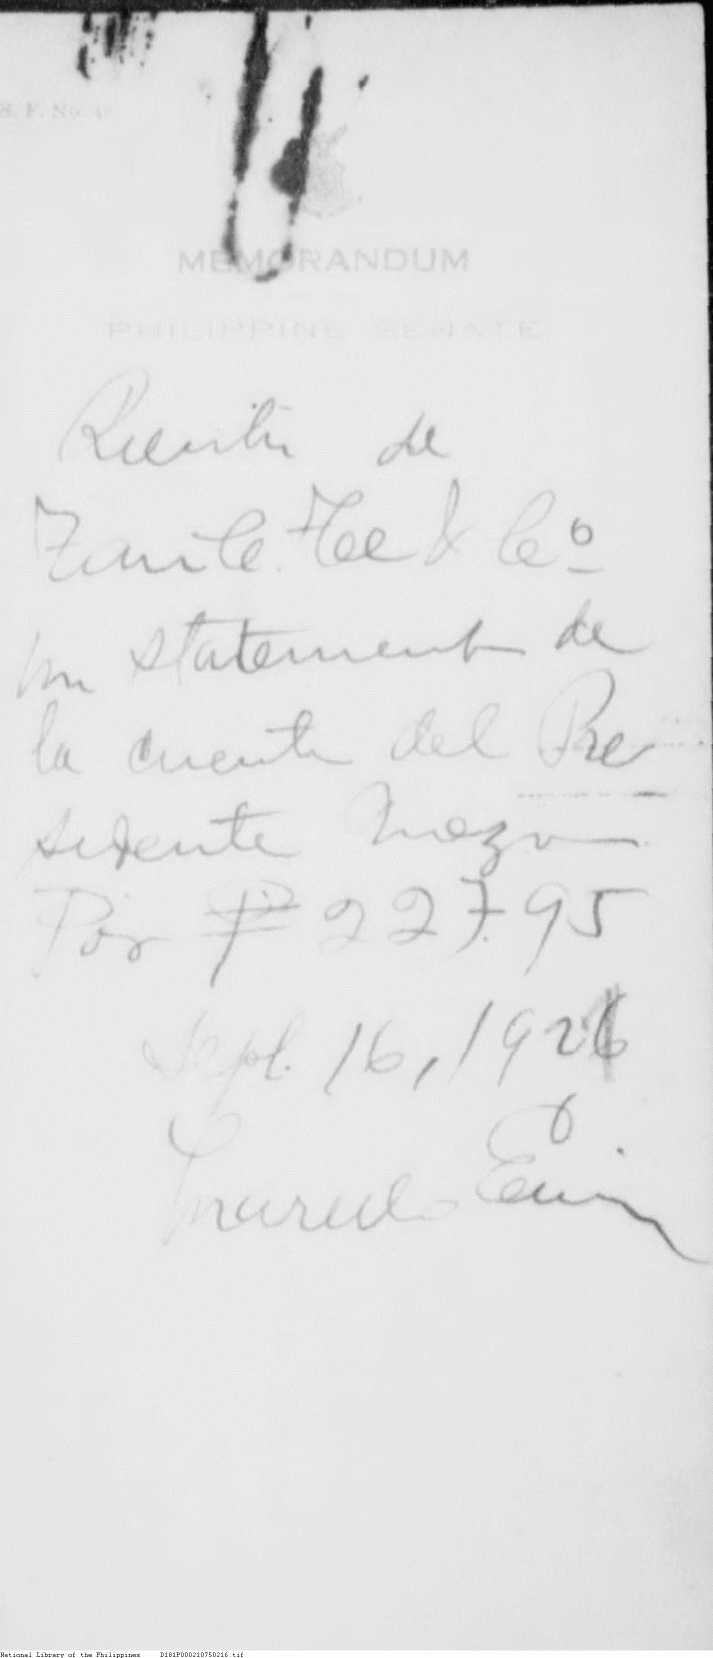 S. F. No.
MEMORANDUM
PHILIPPINE SENATE
Recibí de
Fee & Co
un statement de
la cuenta del Pre
sidente
Por ₱ 227.95
Sept. 16, 1926
National Library of the Philippines D181P000210750216.tif